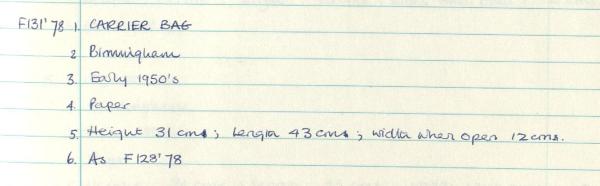 F131'78 1. CARRIER BAG
2. Birmingham
3. Early 1950's
4. Paper
5. Height 31 cms; Length 43 cms; width when open 12 cms.
6. As F128'78